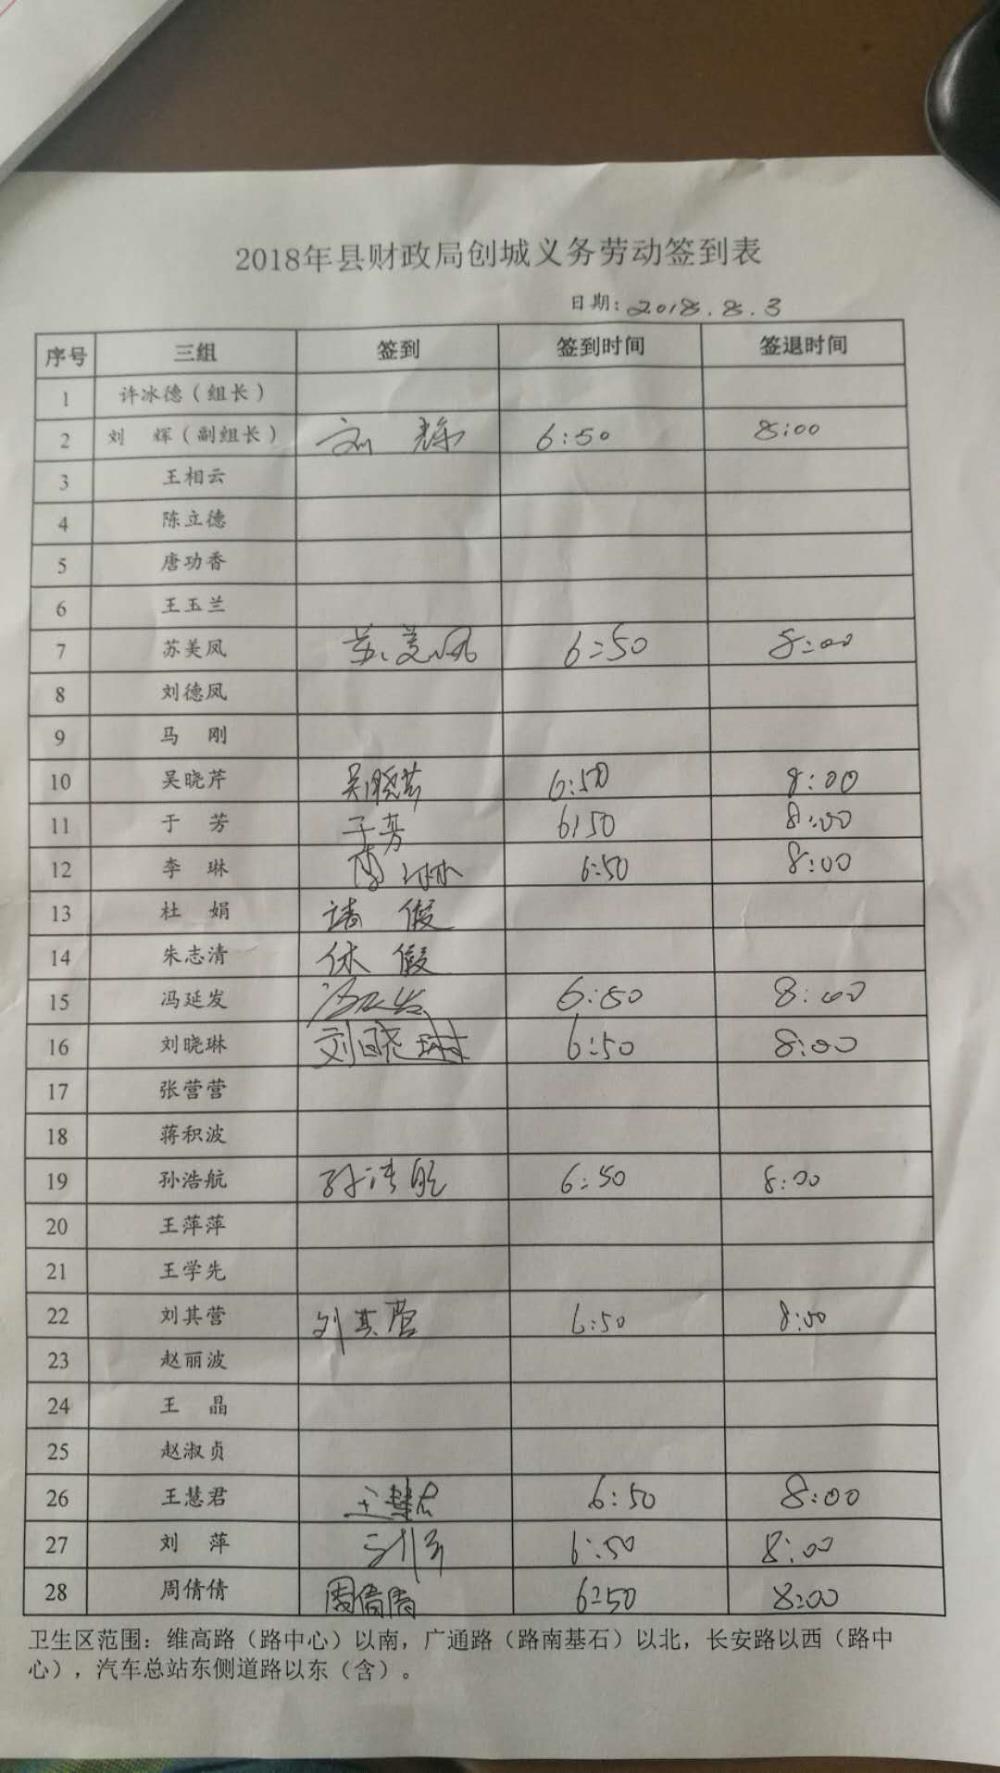 2018年县财政局创城义务劳动签到表
日期：2018.8.3
序号 三组 签到 签到时间 签退时间
1 许冰德（组长）
2 刘 辉（副组长） 刘 辉 6:50 8:00
3 王相云
4 陈立德
5 唐功香
6 王玉兰
7 苏美凤 苏美凤 6:50 8:00
8 刘德凤
9 马 刚
10 吴晓芹 吴晓芹 6:50 8:00
11 于 芳 于芳 6:50 8:00
12 李 琳 6:50 8:00
13 杜 娟 请 假
14 朱志清 休 假
15 冯延发 冯延发 6:50 8:00
16 刘晓琳 刘晓琳 6:50 8:00
17 张营营
18 蒋积波
19 孙浩航 孙浩航 6:50 8:00
20 王萍萍
21 王学先
22 刘其营 刘其营 6:50 8:00
23 赵丽波
24 王 晶
25 赵淑贞
26 王慧君 王慧君 6:50 8:00
27 刘 萍 刘萍 6:50 8:00
28 周倩倩 周倩倩 6:50 8:00
卫生区范围：维高路（路中心）以南，广通路（路南基石）以北，长安路以西（路中
心），汽车总站东侧道路以东（含）。